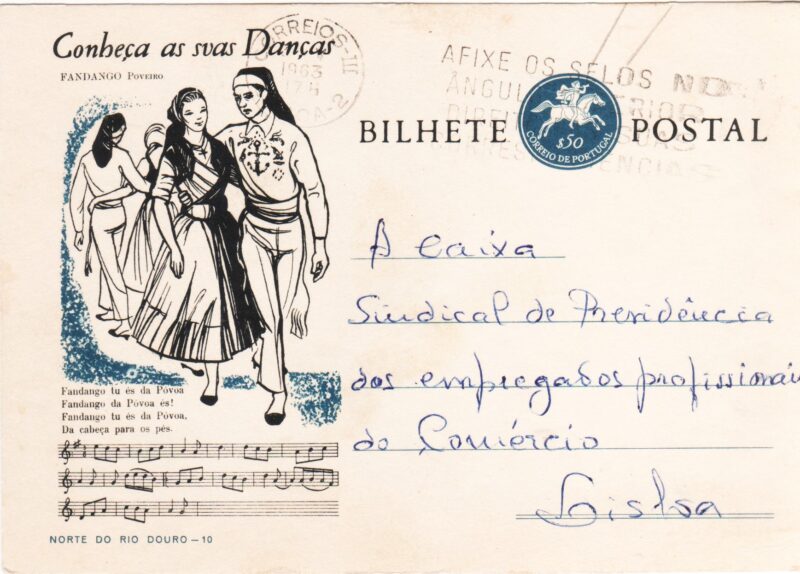 Conheça as svas Danças
FANDANGO Poveiro
CORREIOS-III
1963
17H
AFIXE OS SELOS NO
ÂNGUL
BILHETE POSTAL
$50
CORREIO DE PORTUGAL
À Caixa
Sindical de Previdência
dos empregados profissionais
do Comércio
Lisboa
Fandango tu és da Póvoa
Fandango da Póvoa és!
Fandango tu és da Póvoa,
Da cabeça para os pés.
NORTE DO RIO DOURO — 10